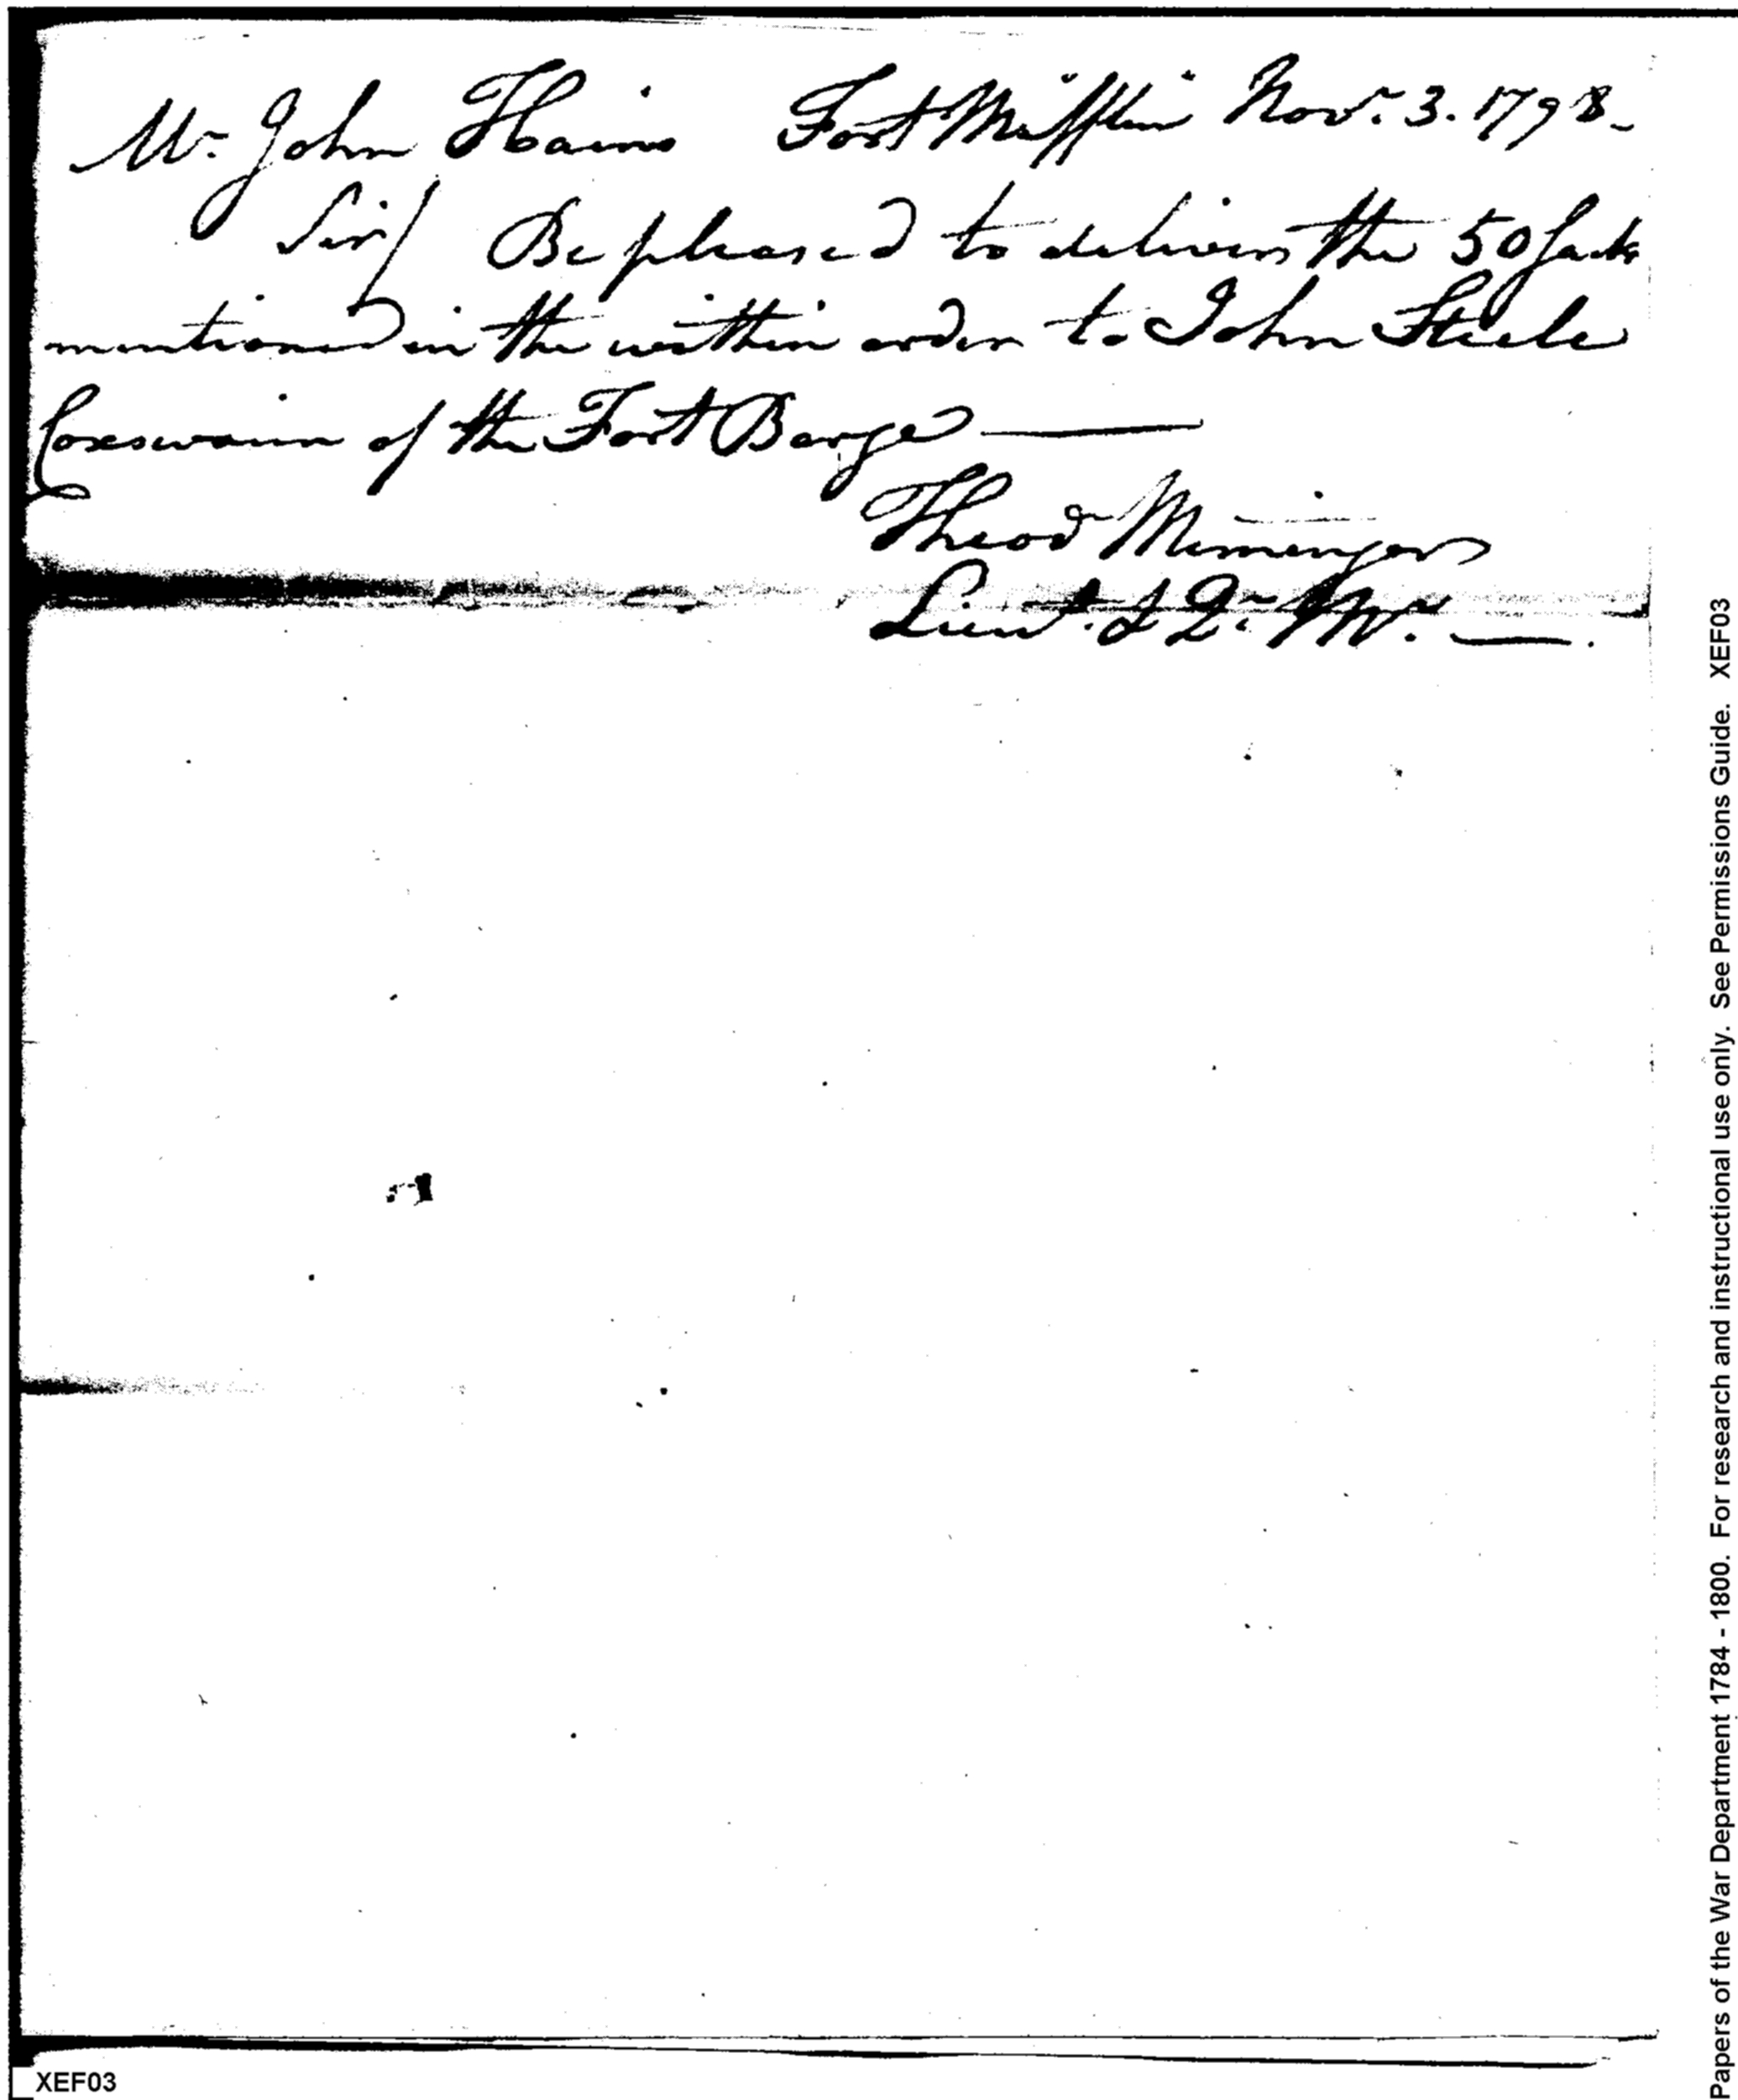 Mr. John Hains Fort Mifflin Novr. 3. 1798-
Sir/ Be pleased to deliver the 50 Sacks
mentioned in the within order to John Steele
Coxeswain of the Fort Barge —
Theodr Meminger
Lieut. & Qr. Mr. — .
Papers of the War Department 1784 - 1800. For research and instructional use only. See Permissions Guide. XEF03
XEF03